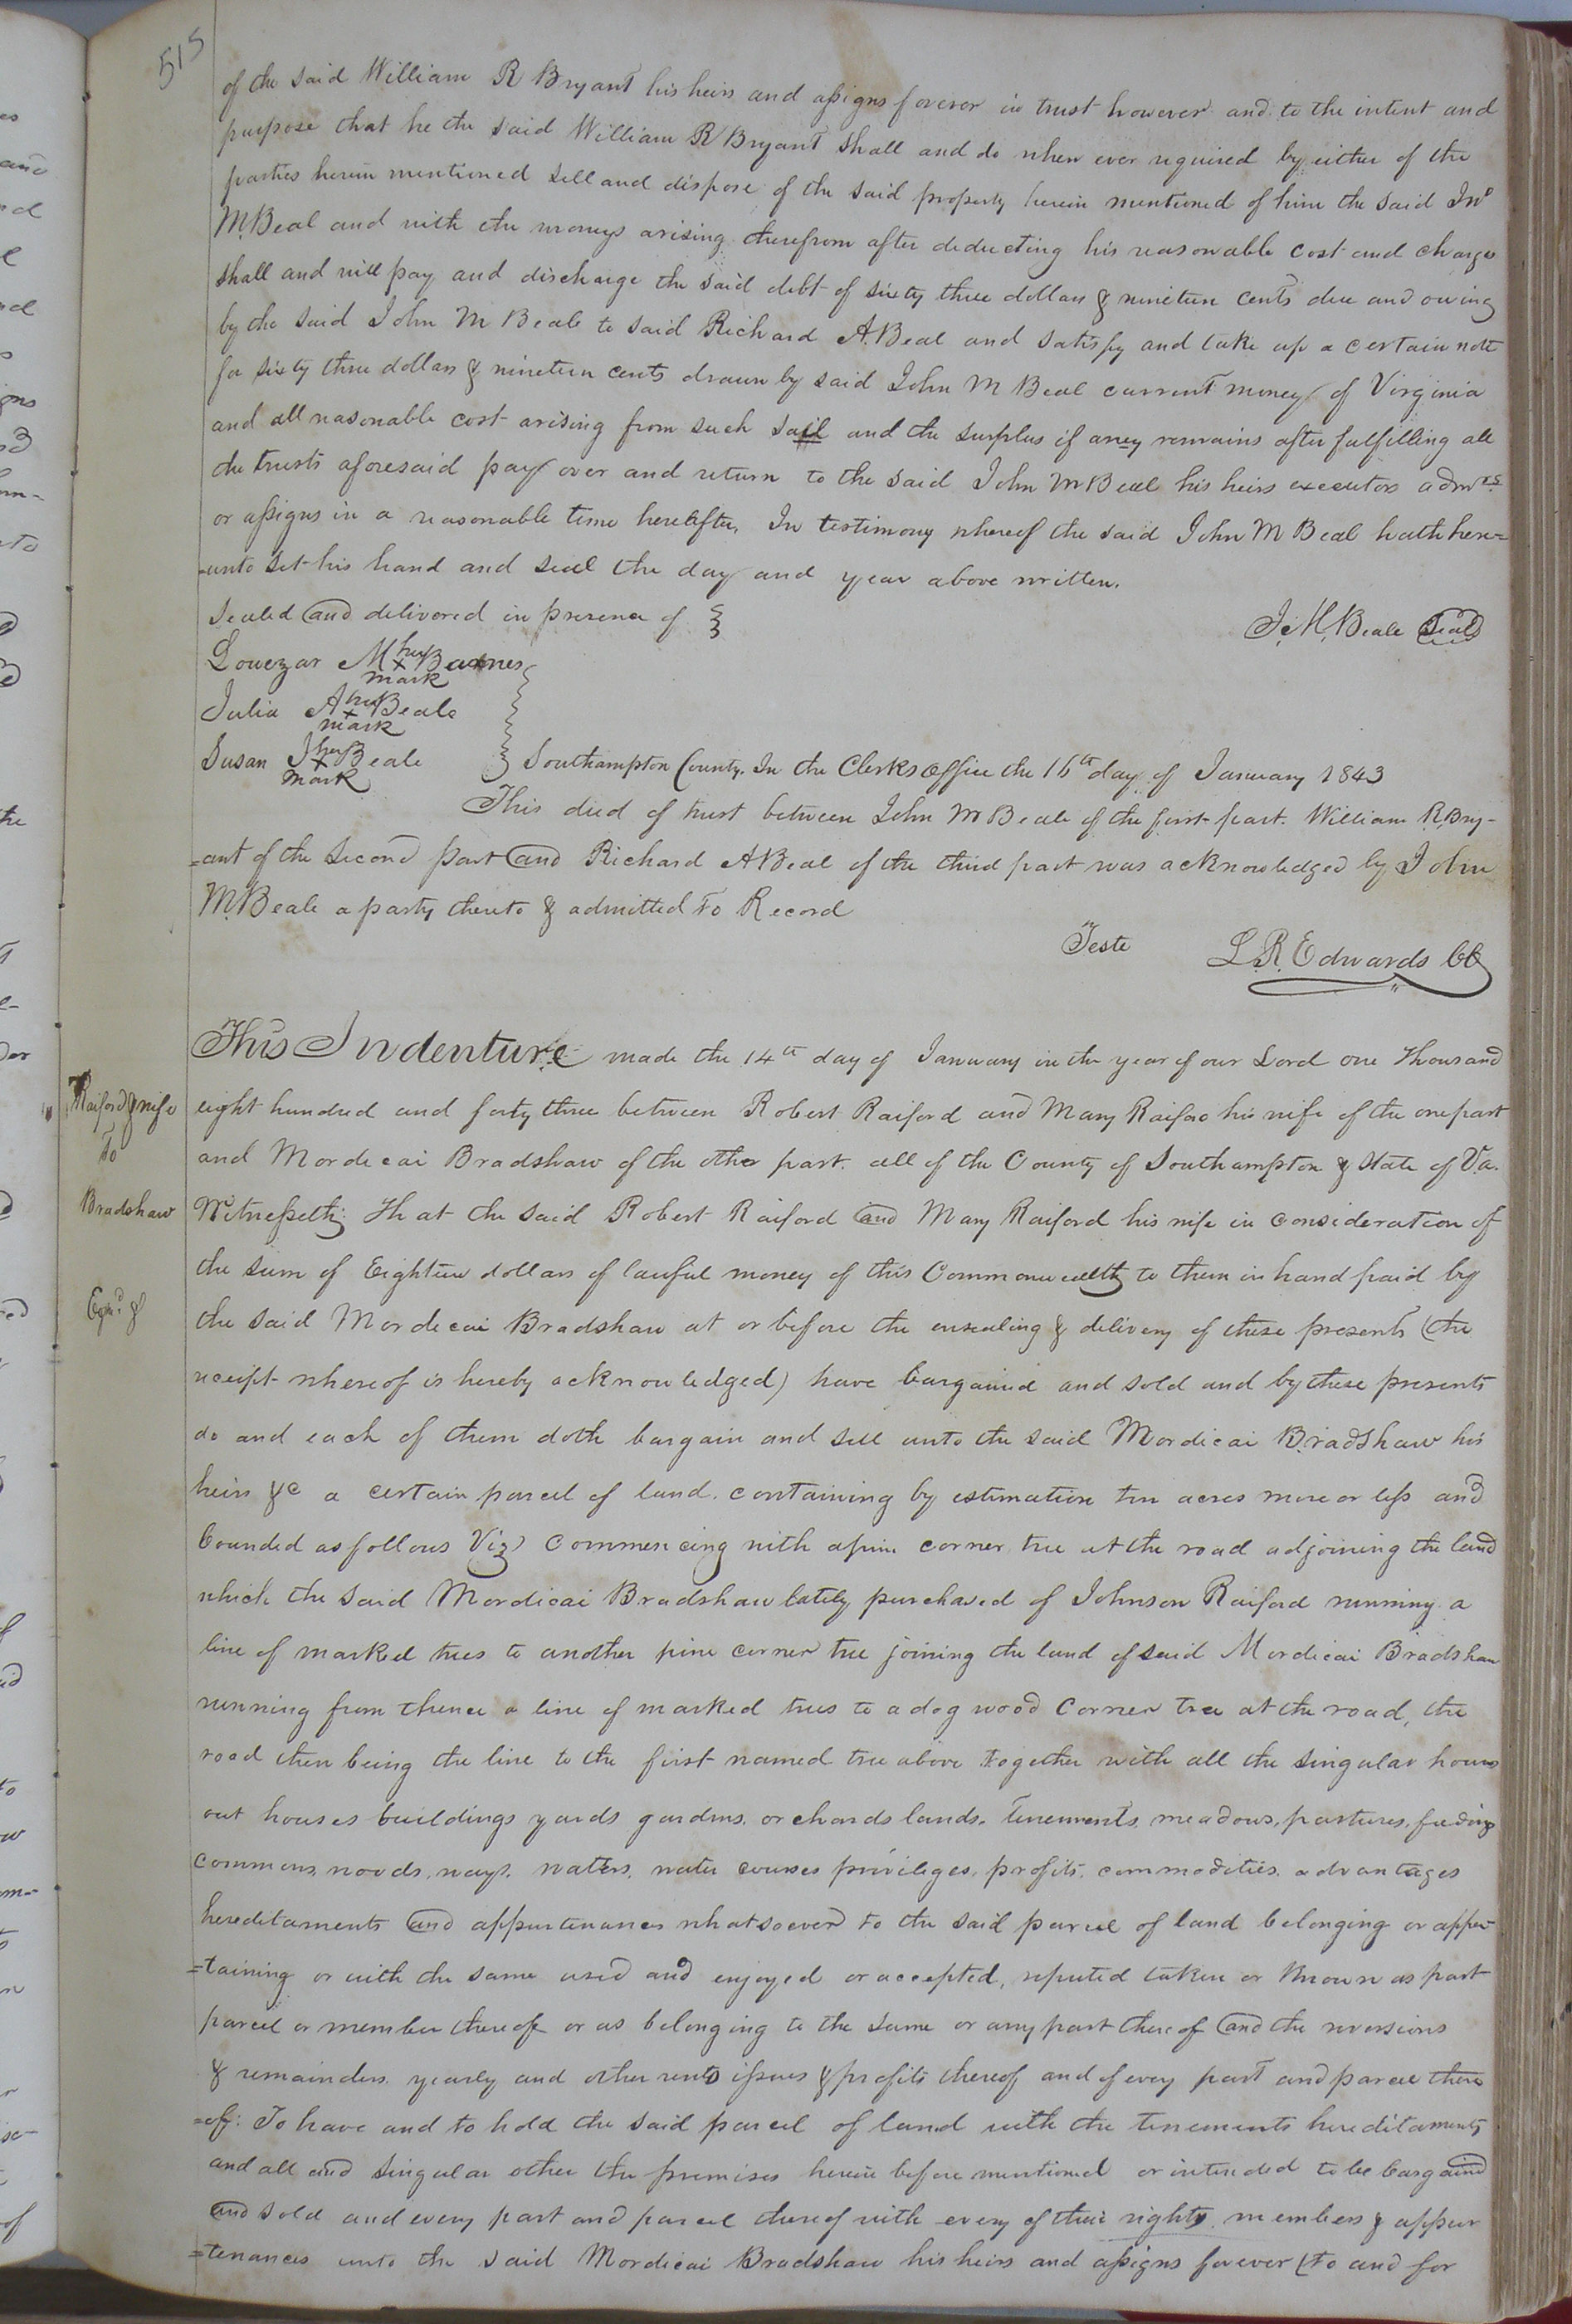 515
of the said William R Bryant his heirs and assigns forever in trust however and to the intent and
purpose that he the said William R Bryant shall and do when ever required by either of the
parties herein mentioned sell and dispose of the said property herein mentioned of him the said Jno
M. Beal and with the moneys arising therefrom after deducting his reasonable cost and charges
shall and will pay and discharge the said debt of sixty three dollars & nineteen cents due and owing
by the said John M Beale to said Richard A. Beal and satisfy and take up a certain note
for sixty three dollars & nineteen cents drawn by said John M Beal current money of Virginia
and all reasonable cost arising from such sail and the surplus if aney remains after fulfilling all
the trusts aforesaid pay over and return to the said John M Beal his heirs executors admrs
or assigns in a reasonable time hereafter. In testimony whereof the said John M Beal hath here=
-unto set his hand and seal the day and year above written.
Sealed and delivered in presence of
J. M. Beale Seal
Louezar M her x mark Barnes
Julia A her x mark Beale
Susan J her x mark Beale
Southampton County. In the Clerks Office the 16th day of January 1843
This deed of trust between John M Beale of the first part. William R. Bry-
=ant of the Second part and Richard A Beal of the third part was acknowledged by John
M. Beale a party thereto & admitted to Record
Teste L. R. Edwards CC
This Indenture made the 14th day of January in the year of our Lord one thousand
Raiford & wife
To
Bradshaw
eight hundred and forty three between Robert Raiford and Mary Raiford his wife of the one part
and Mordecai Bradshaw of the other part. all of the County of Southampton & State of Va.
Witnesseth: That the said Robert Raiford and Mary Raiford his wife in consideration of
the sum of Eighteen dollars of lawful money of this Commonwealth to them in hand paid by
Exmd &
the said Mordecai Bradshaw at or before the ensealing & delivery of these presents (the
receipt whereof is hereby acknowledged) have bargained and sold and by these presents
do and each of them doth bargain and sell unto the said Mordicai Bradshaw his
heirs &c a certain parcel of land. containing by estimation ten acres more or less and
bounded as follows Viz) Commencing with a pine corner tree at the road adjoining the land
which the said Mordicai Bradshaw lately purchased of Johnson Raiford running a
line of marked trees to another pine corner tree joining the land of said Mordicai Bradshaw
running from thence a line of marked trees to a dog wood Corner tree at the road, the
road then being the line to the first named tree above together with all the singular houses
out houses buildings yards gardens, orchards lands. tenements, meadows, pastures, feedings
commons, woods, ways. waters, water courses privileges, profits, commodities. advantages
hereditaments and appurtenances whatsoever to the said parcel of land belonging or apper
=taining or with the same used and enjoyed or accepted, reputed taken or known as part
parcel or member thereof or as belonging to the same or any part thereof and the reversions
& remainders yearly and other rents issues & profits thereof and of every part and parcel there
=of: To have and to hold the said parcel of land with the tenements hereditaments
and all and singular other the premises herein before mentioned or intended to be bargained
and sold and every part and parcel thereof with every of their rights members & appur
=tenances unto the said Mordicai Bradshaw his heirs and assigns forever (to and for